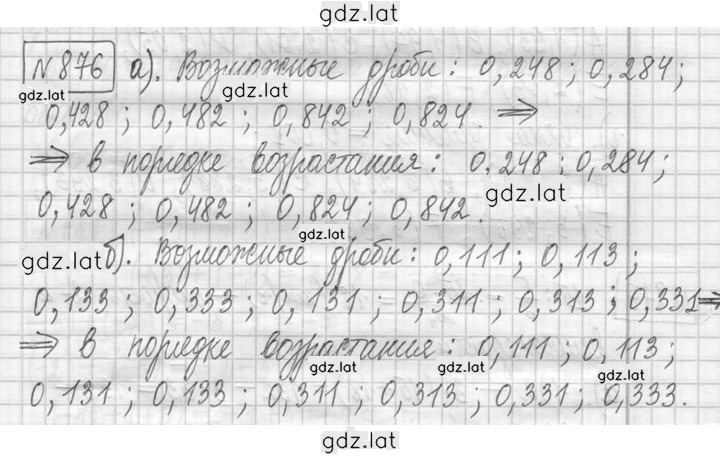 gdz.lat
№876 а). Возможные дроби: 0,248; 0,284;
gdz.lat gdz.lat
0,428; 0,482; 0,842; 0,824. ⇒
⇒ в порядке возрастания: 0,248; 0,284;
gdz.lat
0,428; 0,482; 0,824; 0,842.
gdz.lat
gdz.lat б). Возможные дроби: 0,111; 0,113;
0,133; 0,333; 0,131; 0,311; 0,313; 0,331 ⇒
⇒ в порядке возрастания: 0,111; 0,113;
gdz.lat gdz.lat gdz.lat
0,131; 0,133; 0,311; 0,313; 0,331; 0,333.
gdz.lat